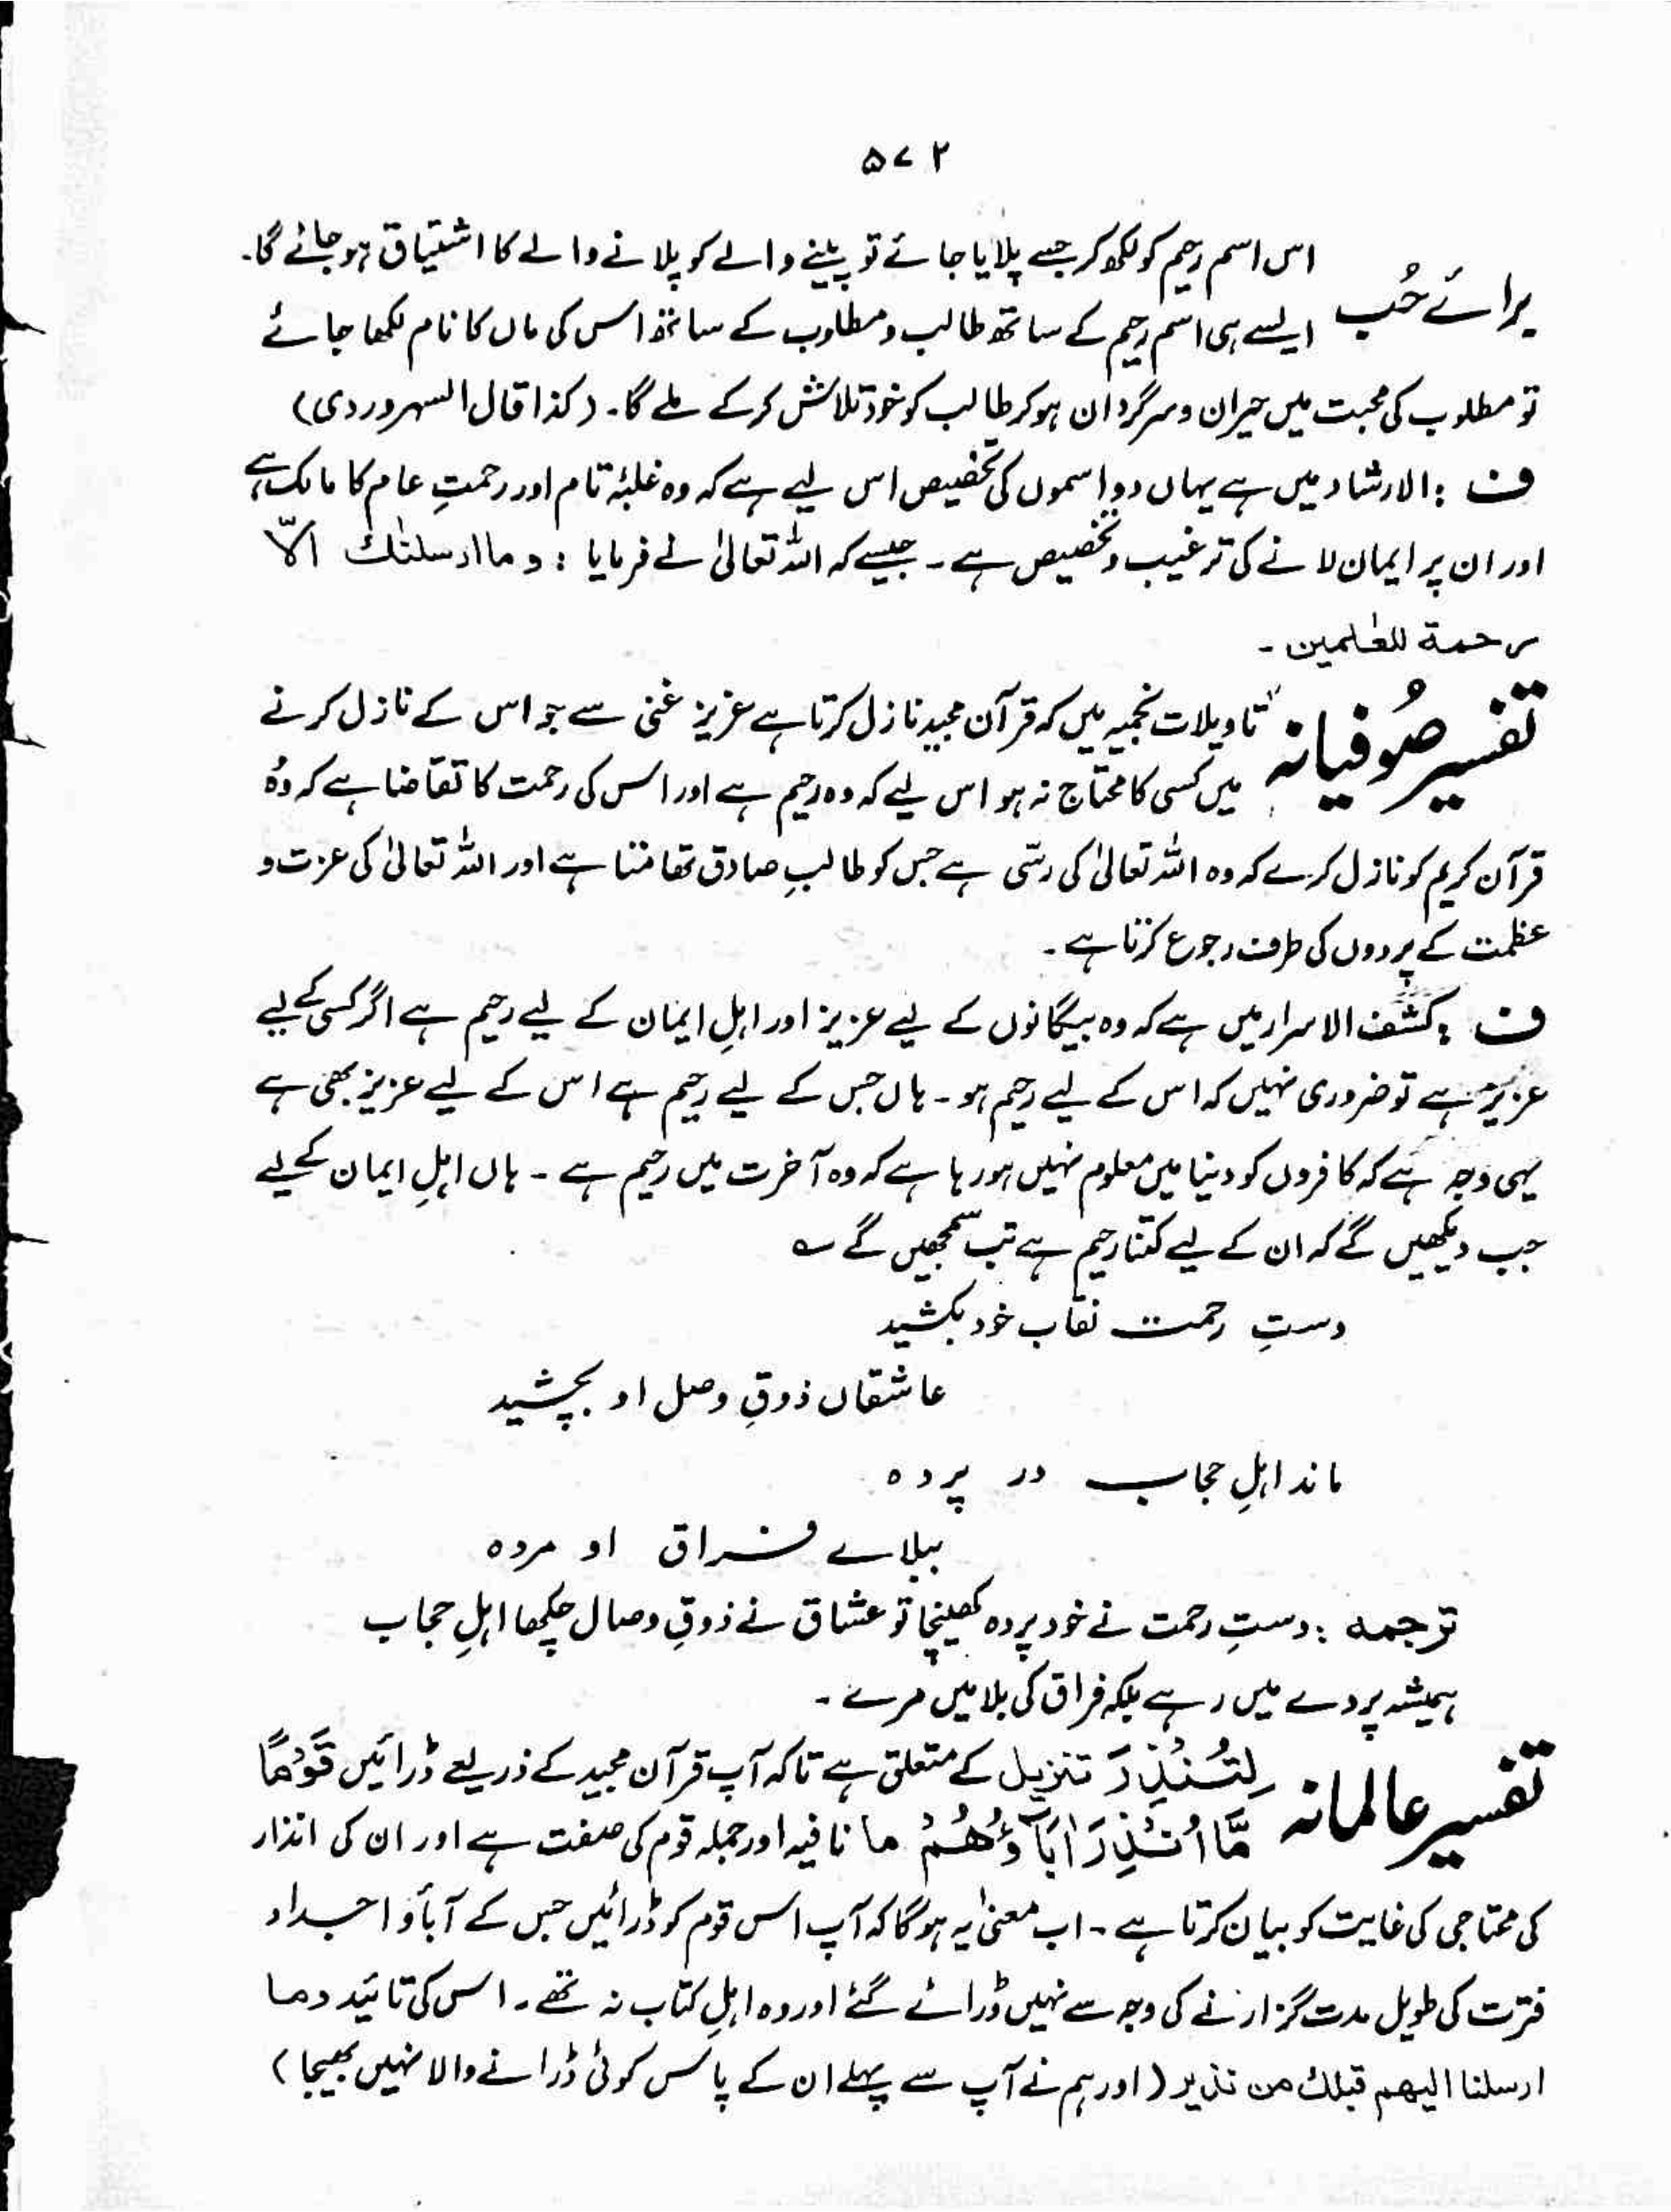 ۵۷۲
اس اسم رحیم کو لکھ کر جسے پلایا جائے تو پینے والے کو پلانے والے کا اشتیاق ہو جائے گا۔
برائے حُب
ایسے ہی اسم رحیم کے ساتھ طالب و مطلوب کے ساتھ اس کی ماں کا نام لکھا جائے
تو مطلوب کی محبت میں حیران و سرگردان ہو کر طالب کو خود تلاش کرکے ملے گا۔ (کذا قال السہروردی)
ف : الارشاد میں ہے یہاں دو اسموں کی تخصیص اس لیے ہے کہ وہ غلبۂ تام اور رحمتِ عام کا مالک ہے
اور ان پر ایمان لانے کی ترغیب و تخصیص ہے ۔ جیسے کہ اللہ تعالیٰ نے فرمایا : وما ارسلنٰك الّا
رحمة للعٰلمین ۔
تفسیر صُوفیانہ
تاویلات نجمیہ میں کہ قرآن مجید نازل کرتا ہے عزیز غنی سے جو اس کے نازل کرنے
میں کسی کا محتاج نہ ہو اس لیے کہ وہ رحیم ہے اور اس کی رحمت کا تقاضا ہے کہ وُہ
قرآن کریم کو نازل کرے کہ وہ اللہ تعالیٰ کی رسّی ہے جس کو طالبِ صادق تھامتا ہے اور اللہ تعالیٰ کی عزت و
عظمت کے پردوں کی طرف رجوع کرتا ہے ۔
ف : کشف الاسرار میں ہے کہ وہ بیگانوں کے لیے عزیز اور اہلِ ایمان کے لیے رحیم ہے اگر کسی کے لیے
عزیز ہے تو ضروری نہیں کہ اس کے لیے رحیم ہو ۔ ہاں جس کے لیے رحیم ہے اس کے لیے عزیز بھی ہے
یہی وجہ ہے کہ کافروں کو دنیا میں معلوم نہیں ہو رہا ہے کہ وہ آخرت میں رحیم ہے ۔ ہاں اہلِ ایمان کے لیے
جب دیکھیں گے کہ ان کے لیے کتنا رحیم ہے تب سمجھیں گے ؎
دستِ رحمت نقاب خود بکشید
عاشقاں ذوقِ وصل او بچشید
ماند اہلِ حجاب در پردہ
ببلاے فراق او مردہ
ترجمہ : دستِ رحمت نے خود پردہ کھینچا تو عشاق نے ذوقِ وصال چکھا اہلِ حجاب
ہمیشہ پردے میں رہے بلکہ فراق کی بلا میں مرے ۔
تفسیر عالمانہ
لِتُنْذِرَ تنزیل کے متعلق ہے تاکہ آپ قرآن مجید کے ذریعے ڈرائیں قَوْمًا
مَّا اُنْذِرَ اٰبَآؤُهُمْ ما نافیہ اور جملہ قوم کی صفت ہے اور ان کی انذار
کی محتاجی کی غایت کو بیان کرتا ہے ۔ اب معنیٰ یہ ہوگا کہ آپ اس قوم کو ڈرائیں جس کے آباؤ اجداد
فترت کی طویل مدت گزارنے کی وجہ سے نہیں ڈرائے گئے اور وہ اہلِ کتاب نہ تھے ۔ اس کی تائید وما
ارسلنا الیهم قبلك من نذیر (اور ہم نے آپ سے پہلے ان کے پاس کوئی ڈرانے والا نہیں بھیجا)